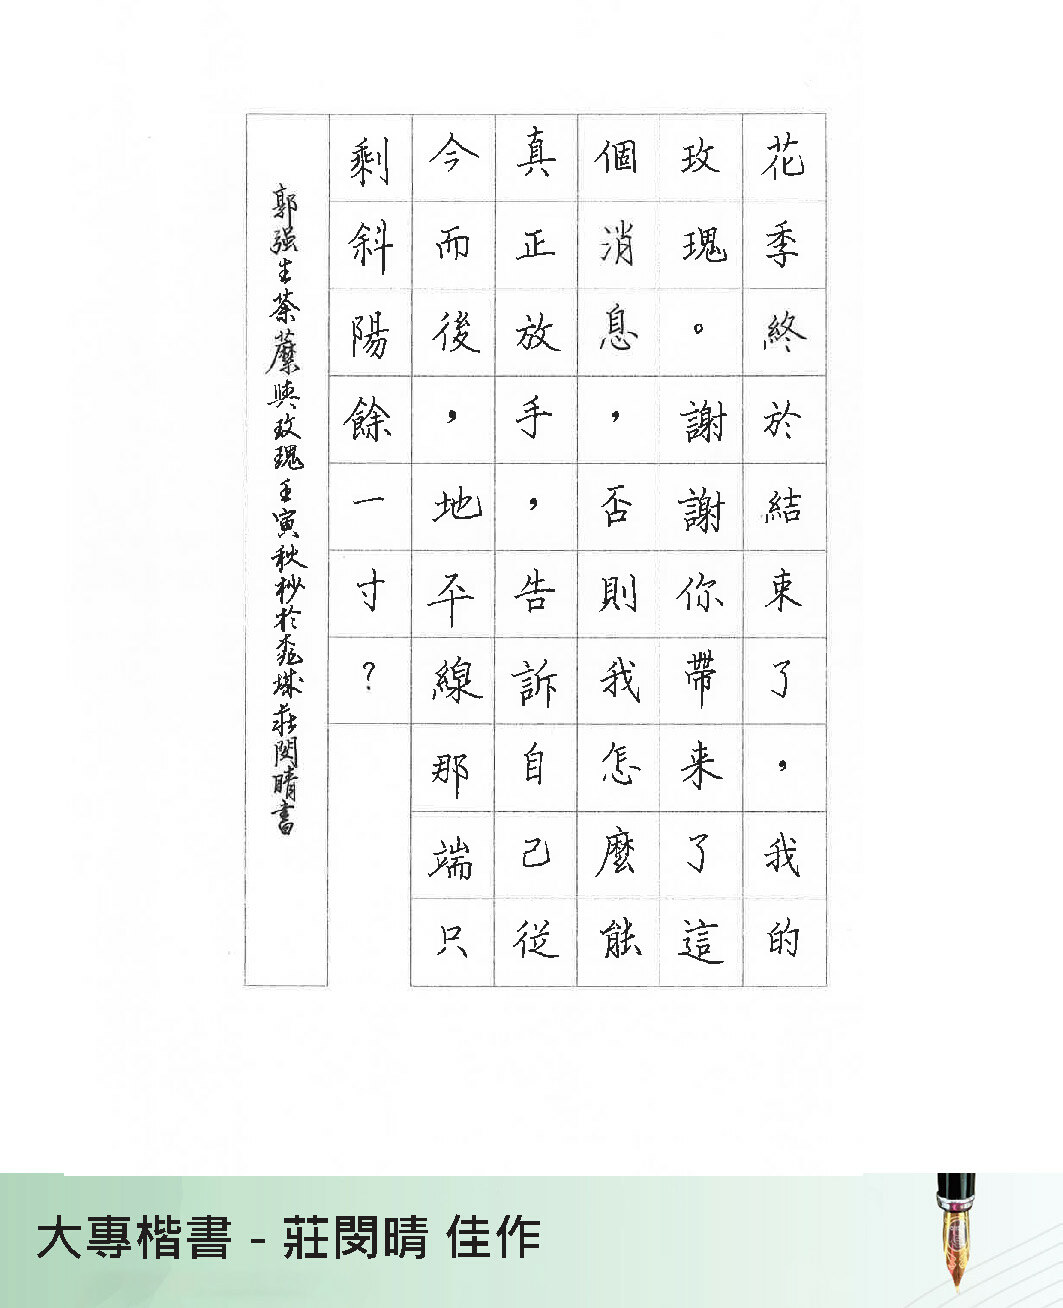 花季終於結束了，我的
玫瑰。謝謝你帶来了這
個消息，否則我怎麼能
真正放手，告訴自己從
今而後，地平線那端只
剩斜陽餘一寸？
郭强生荼蘼與玫瑰壬寅秋杪於桃城莊閔晴書
大專楷書 - 莊閔晴 佳作